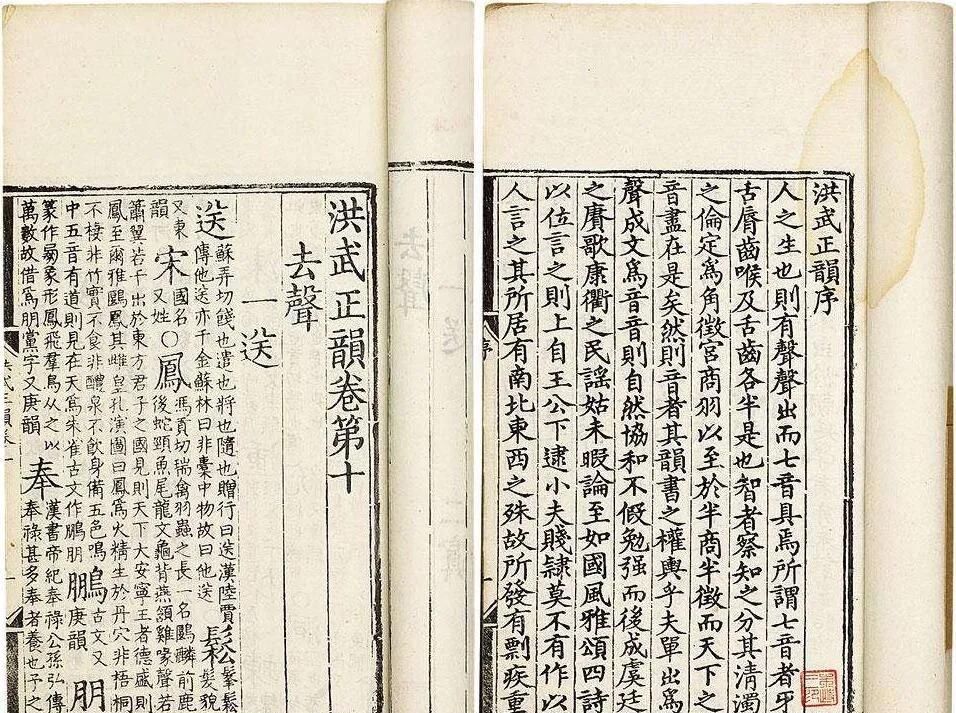 洪武正韻序
人之生也則有聲聲出而七音具焉所謂七音者牙
舌脣齒喉及舌齒各半是也智者察知之分其清濁
之倫定爲角徵宮商羽以至於半商半徵而天下之
音盡在是矣然則音者其韻書之權輿乎夫單出爲
聲成文爲音音則自然協和不假勉强而後成虞廷
之賡歌康衢之民謠姑未暇論至如國風雅頌四詩
以位言之則上自王公下逮小夫賤隸莫不有作以
人言之其所居有南北東西之殊故所發有剽疾重
洪武正韻卷第十
去聲
一送
送蘇弄切餞也遣也將也隨也贈行曰送漢陸賈傳他送亦千金蘇林曰非囊中物故曰他送鬆鬆髮貌
又東韻宋國名又姓○鳳馮貢切瑞禽羽蟲之長一名鶠麟前鹿後蛇頸魚尾龍文龜背燕頷雞喙聲若
簫翼若干出於東方君子之國見則天下大安寧王者德盛則
鳳至爾雅鶠鳳其雌皇孔演圖曰鳳爲火精生於丹穴非梧桐
不棲非竹實不食非醴泉不飲身備五色鳴中五音有道則見在天爲朱雀古文作鵬朋鵬古文又庚韻朋
篆作象形鳳飛羣鳥從之以萬數故借爲朋黨字又庚韻奉漢書帝紀奉祿公孫弘傳奉祿甚多奉者養也子之